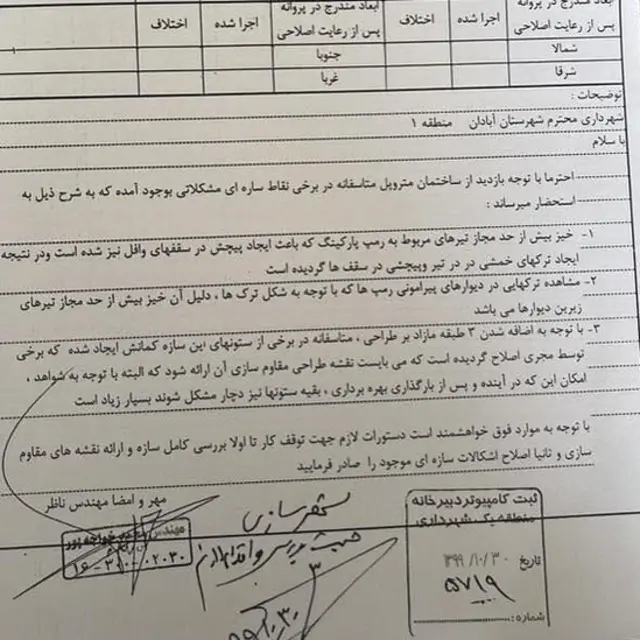 ابعاد مندرج در پروانه
پس از رعایت اصلاحی
اجرا شده
اختلاف
ابعاد مندرج در پروانه
پس از رعایت اصلاحی
اجرا شده
اختلاف
شمالا
جنوبا
شرقا
غربا
توضیحات :
شهرداری محترم شهرستان آبادان منطقه ۱
با سلام
احترما با توجه بازدید از ساختمان متروپل متاسفانه در برخی نقاط سازه ای مشکلاتی بوجود آمده که به شرح ذیل به
استحضار میرساند :
۱- خیز بیش از حد مجاز تیرهای مربوط به رمپ پارکینگ که باعث ایجاد پیچش در سقفهای وافل نیز شده است ودر نتیجه
ایجاد ترکهای خمشی در در تیر وپیچشی در سقف ها گردیده است
۲- مشاهده ترکهایی در دیوارهای پیرامونی رمپ ها که با توجه به شکل ترک ها ، دلیل آن خیز بیش از حد مجاز تیرهای
زیرین دیوارها می باشد
۳- با توجه به اضافه شدن ۳ طبقه مازاد بر طراحی ، متاسفانه در برخی از ستونهای این سازه کمانش ایجاد شده که برخی
توسط مجری اصلاح گردیده است که می بایست نقشه طراحی مقاوم سازی آن ارائه شود که البته با توجه به شواهد ،
امکان این که در آینده و پس از بارگذاری بهره برداری ، بقیه ستونها نیز دچار مشکل شوند بسیار زیاد است
با توجه به موارد فوق خواهشمند است دستورات لازم جهت توقف کار تا اولا بررسی کامل سازه و ارائه نقشه های مقاوم
سازی و ثانیا اصلاح اشکالات سازه ای موجود را صادر فرمایید
مهر و امضا مهندس ناظر
مهندس
۱۶-۳۱۰-۰۲۰۳۰
جهت بررسی و اقدام لازم
ثبت کامپیوتر دبیرخانه
منطقه یک شهرداری
تاریخ ۱۳۹۹/۱۰/۳۰
۵۷۱۹
شماره: